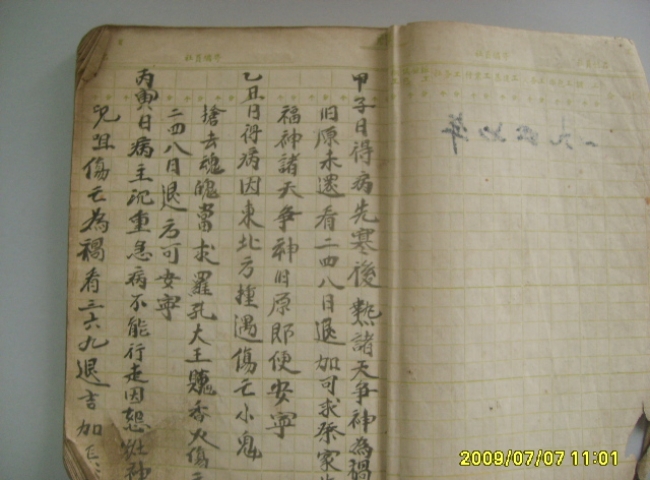 甲子日得病先寒後熱諸天爭神為禍
旧原未還看二四八日退加可求祭家
福神諸天爭神旧原即便安寧
乙丑日得病因東北方撞遇傷亡小鬼
搶去魂魄當求羅孔大王香火傷亡
二四八日退方可安寧
丙寅日病主沉重急病不能行走因怨灶神
傷亡為禍看三六九退吉加
一九年
2009/07/07 11:01